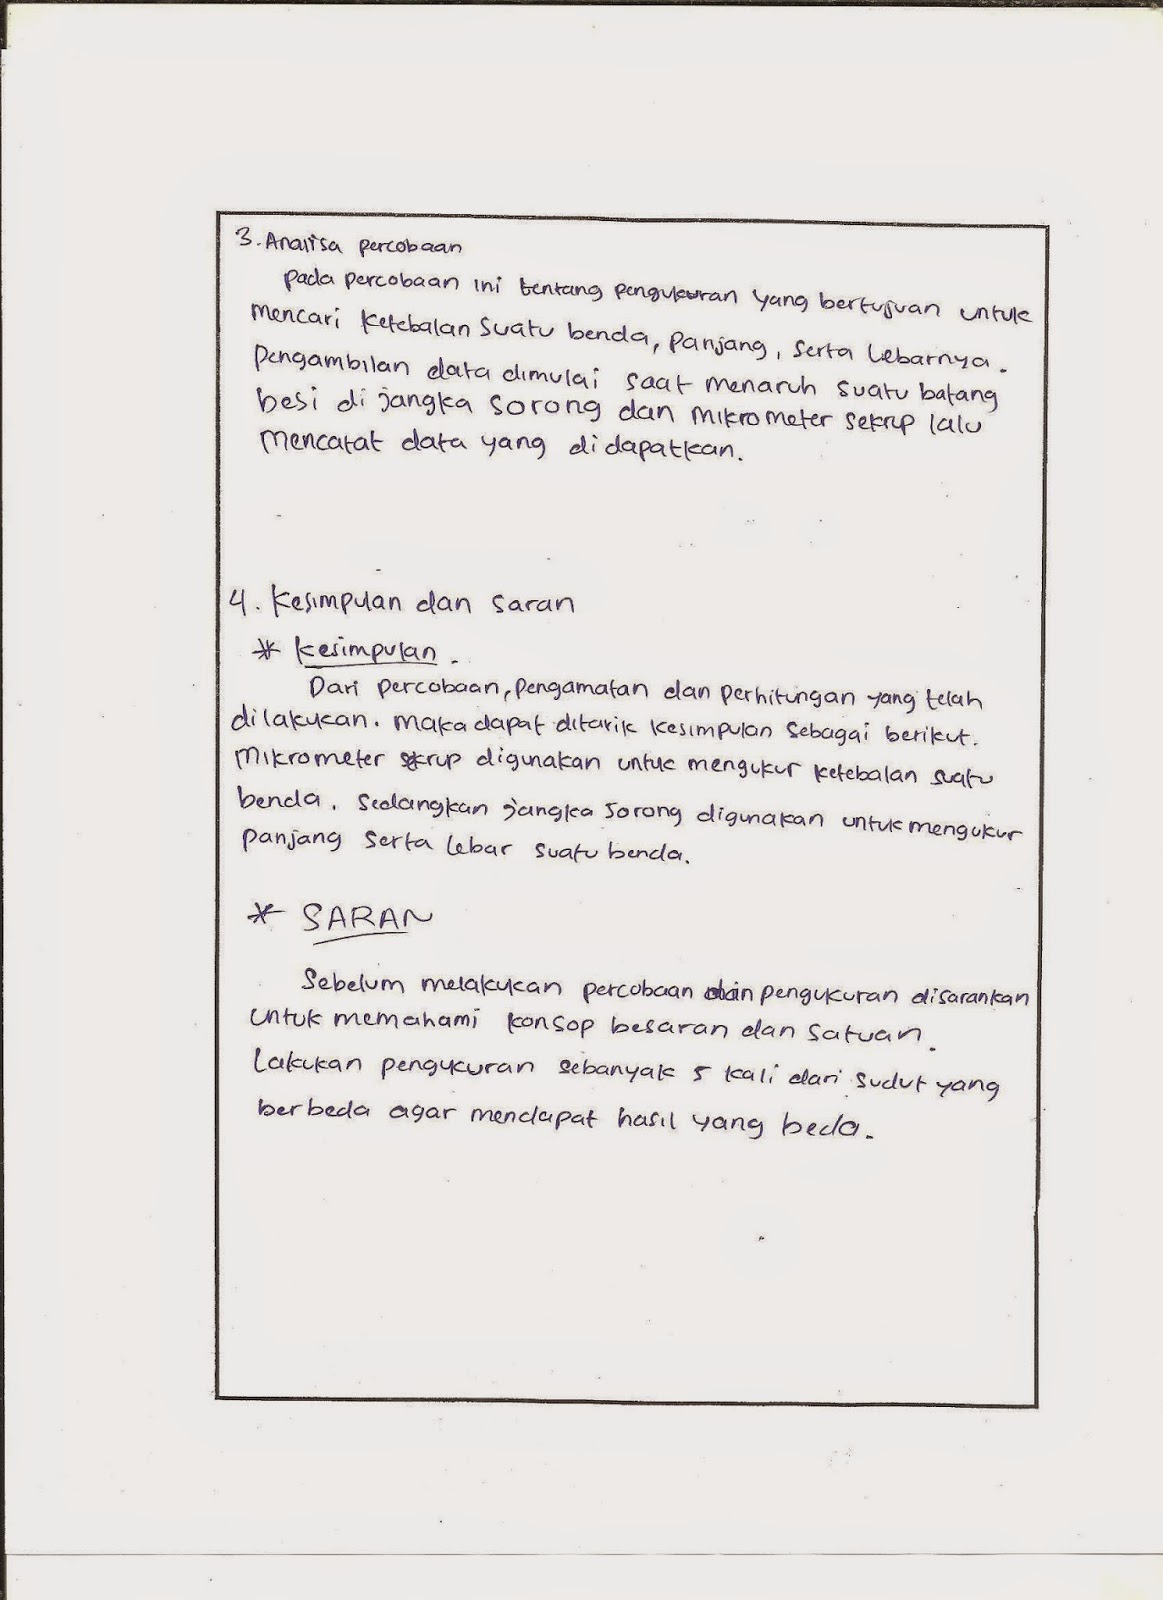 3. Analisa percobaan
pada percobaan ini tentang pengukuran yang bertujuan untuk
mencari ketebalan suatu benda, panjang, serta lebarnya.
pengambilan data dimulai saat menaruh suatu batang
besi di jangka sorong dan mikrometer sekrup lalu
mencatat data yang didapatkan.
4. Kesimpulan dan saran
* Kesimpulan.
Dari percobaan, pengamatan dan perhitungan yang telah
dilakukan. maka dapat ditarik kesimpulan sebagai berikut.
Mikrometer skrup digunakan untuk mengukur ketebalan suatu
benda. Sedangkan jangka sorong digunakan untuk mengukur
panjang serta lebar suatu benda.
* SARAN
Sebelum melakukan percobaan dan pengukuran disarankan
untuk memahami konsop besaran dan satuan.
Lakukan pengukuran sebanyak 5 kali dari sudut yang
berbeda agar mendapat hasil yang beda.